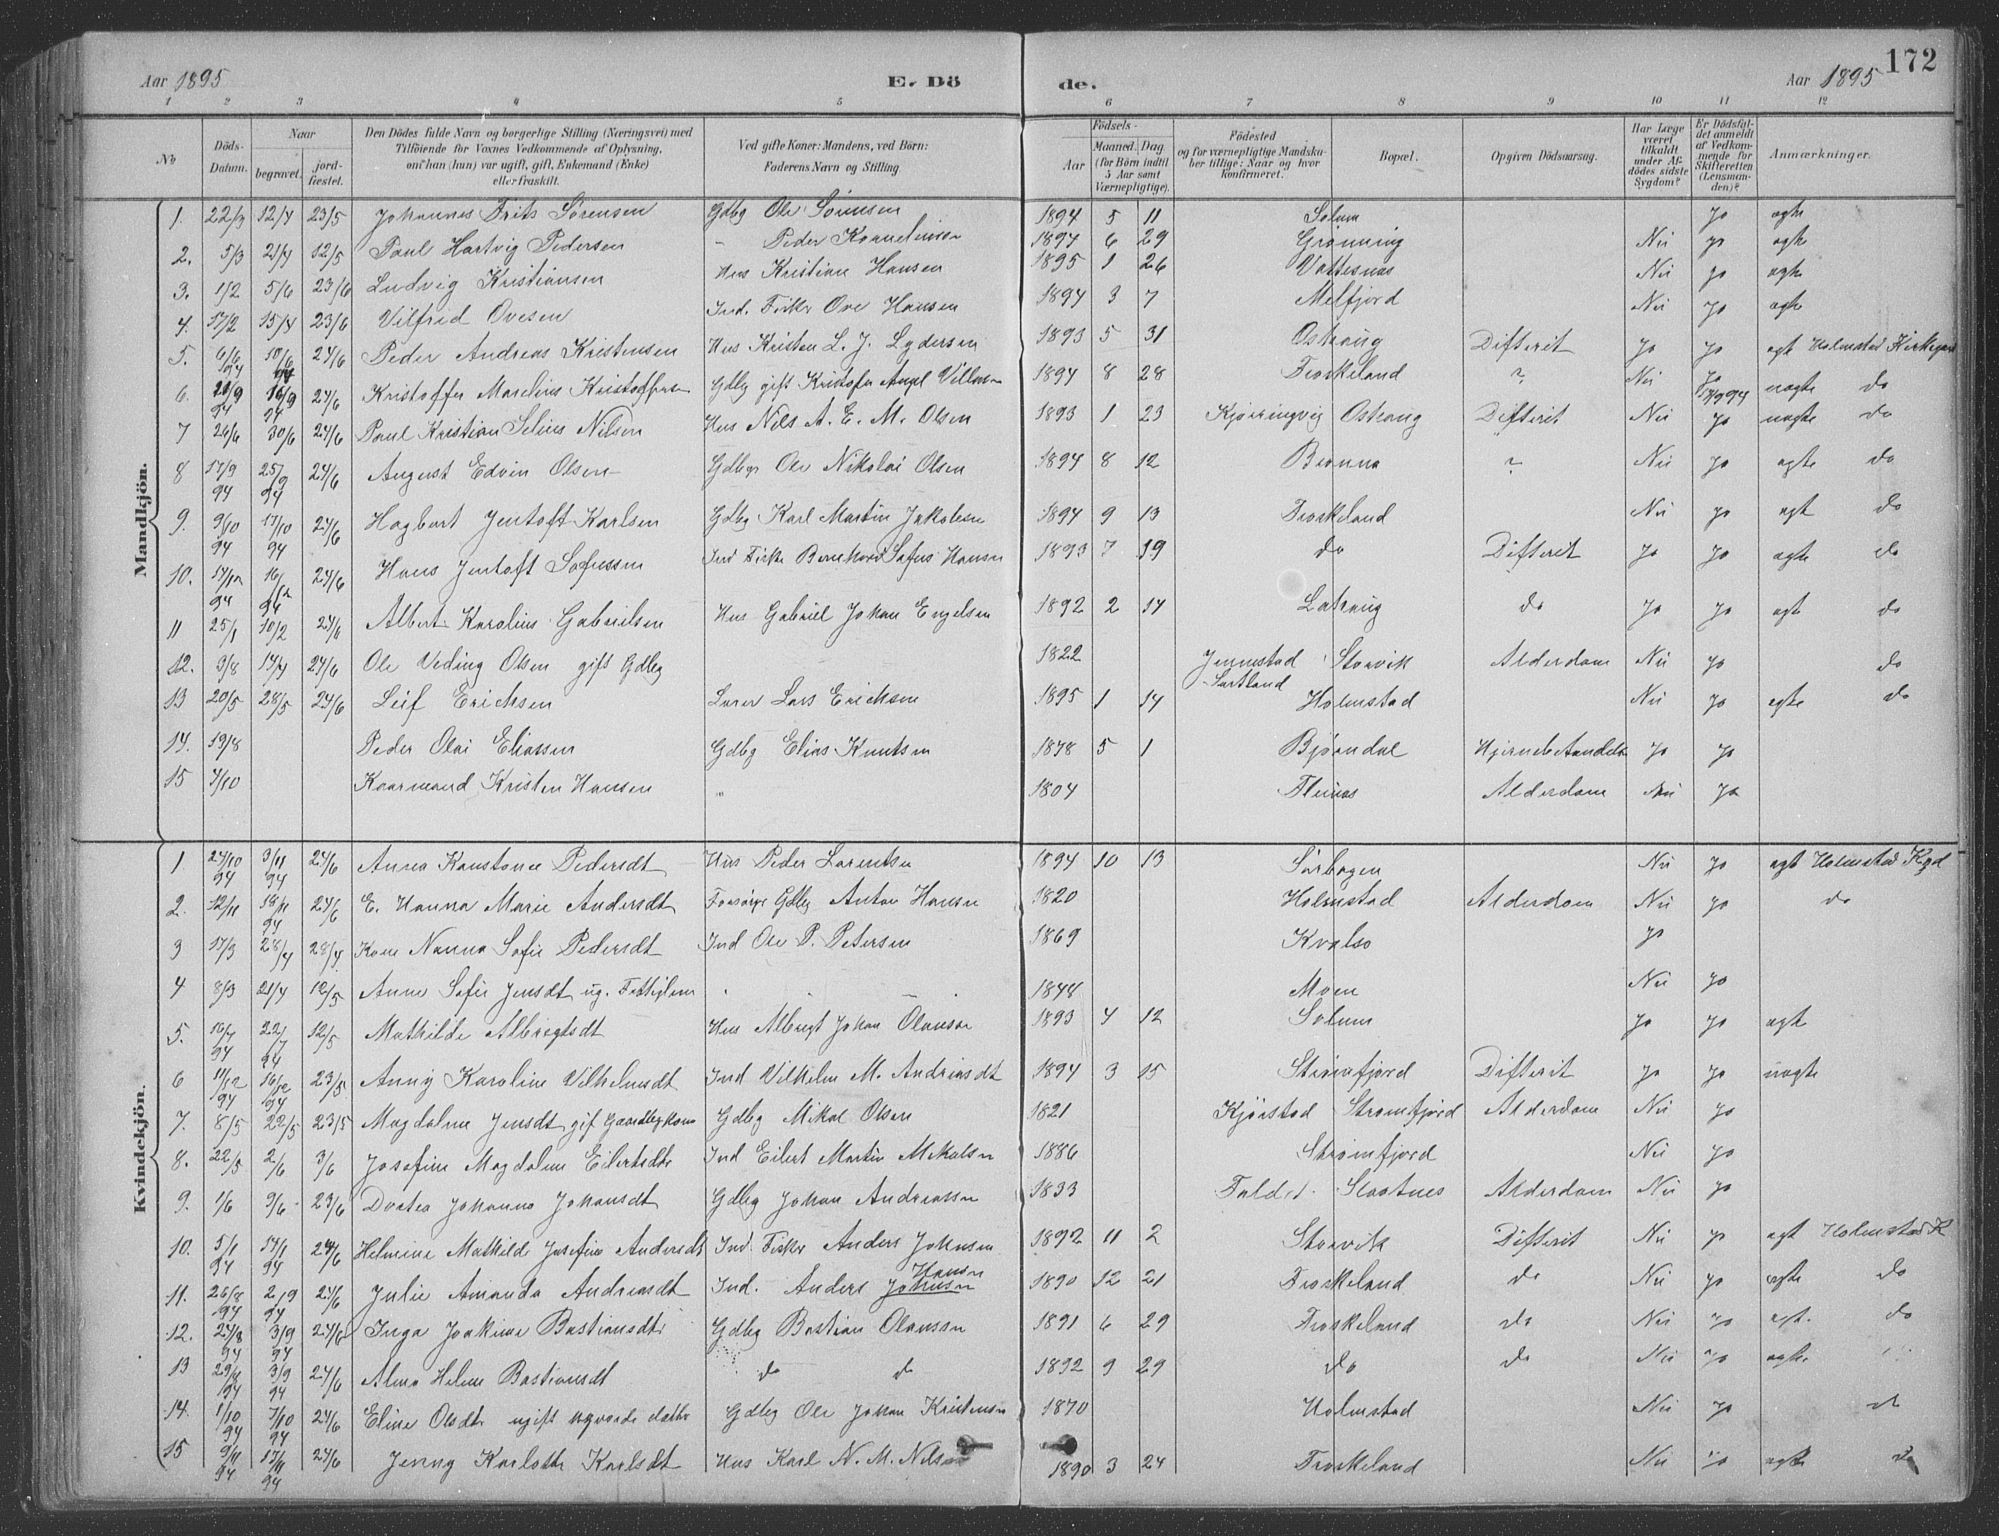 Aar 1895 E. Dö de. Aar 1895 172
1 2 3 4 5 6 7 8 9 10 11 12
No
Döds-Datum.
Naar
begravet.
jord-fæstet.
Den Dödes fulde Navn og borgerlige Stilling (Næringsvei) med
Tilföiende for Voxnes Vedkommende af Oplysning,
om han (hun) var ugift, gift, Enkemand (Enke)
eller fraskilt.
Ved gifte Koner: Mandens, ved Börn:
Faderens Navn og Stilling
Födsels-
Aar
Maaned. Dag
(for Börn indtil
5 Aar samt
Værnepligtige).
Födested
og for værnepligtige Mandska-
ber tillige: Naar og hvor
konfirmeret.
Bopæl.
Opgiven Dödsaarsag.
Har Læge
været
tilkaldt
under Af-
dödes sidste
Sygdom?
Er Dödsfal-
det anmeldt
af Vedkom-
mende for
Skifteretten
(Lensman-
den)?
Anmærkninger.
Mandkjön.
1. 22/3 12/4 23/5 Johannes Frits Sørensen Gdbg Ole Sørensen 1894 5 11 Solum Jo ægte
2. 5/3 21/4 12/5 Paul Hartvig Pedersen " Peder Kornelius 1894 6 29 Grønning Nei jo ægte
3. 1/2 5/6 23/6 Ludvig Kristiansen Hus Kristian Hansen 1895 1 26 Vottesnes Nei jo ægte
4. 17/2 15/4 23/6 Vilfrid Ovesen Ind. Fisker Ove Hansen 1894 3 7 Melfjord Nei jo ægte
5. 6/6 94 10/6 94 24/6 Peder Andreas Kristensen Hus Kristen L. J. Lydersen 1893 5 31 Ostvaag Difterit jo jo ægt Holmstad Kirkegaard
6. 9 94 16/9 94 24/6 Kristoffer Marelius Kristoffersen Gdbg gift Kristofer Angel Villumsen 1894 8 28 Froskeland ? Nei Jo 94 uægte do
7 26/6 30/6 24/6 Paul Kristian Selius Nilsen Hus Nils A. E. M. Olsen 1893 1 23 Kjørringvig Ostvaag Difterit Nei jo uægte do
8 17/9 94 25/9 94 24/6 August Edvin Olsen Gdbgr Ole Nikolai Olsen 1894 8 12 Brenna ? Nei jo ægte do
9. 9/10 94 17/10 94 24/6 Hagbart Jentoft Karlsen Gdbg Karl Martin Jakobsen 1894 9 13 Froskeland Nei jo ægt do
10. 14/12 94 16/12 94 24/6 Hans Jentoft Sofussen Ind Fisker Bernhard Sofus Hansen 1893 7 19 do Difterit jo jo ægte do
11 25/1 10/2 24/6 Albert Karolius Gabrielsen Hus Gabriel Johan Engelsen 1892 2 14 Lotvaag do jo jo ægt do
12. 9/8 14/4 24/6 Ole Veding Olsen gift Gdbg 1822 Jennestad Sortland Storvik Alderdom Nei jo do
13 20/5 28/5 24/6 Leif Ericksen Lærer Lars Ericksen 1895 1 14 Holmstad Nei jo ægte do
14. 19/8 Peder Olai Eliassen Gdbg Elias Knutsen 1878 5 1 Bjørndal Hjernebetændelse jo jo
15 4/10 Kaarmand Kristen Hansen " 1804 Flesnes Alderdom Nei jo
Kvindekjön.
1 24/10 94 3/11 94 24/6 Anna Konstance Pedersdt Hus Peder Lorentsen 1894 10 13 Sørbogen Nei jo ægt Holmstad Kgd
2. 12/11 18/11 94 24/6 E. Hanna Marie Andersdt Forsørges Gdbg Anton Hansen 1820 Holmstad Alderdom Nei jo do
3 17/3 28/4 28/4 Kone Nanna Sofie Pedersdt Ind Ole P. Petersen 1869 Kvalsø jo
4 8/3 21/4 12/5 Anne Sofie Jensdt ug. Fattiglem " 1844 Moen Nei jo
5. 16/7 94 22/7 94 12/5 Mathilde Albregtsdt Hus Albregt Johan Olausen 1893 4 12 Solum jo jo ægt
6 11/12 94 16/12 94 23/5 Anny Karoline Vilhelmsdt Ind Vilhelm M. Andreasdt 1894 3 15 Strømfjord Difterit jo jo uægte
7. 8/5 22/5 23/5 Magdalene Jensdt gif Gaardbgkone Gdbg Mikal Olsen 1821 Kjørstad Strømfjord Alderdom Nei jo
8. 22/5 2/6 3/6 Josefine Magdalene Eilertsdtr Ind Eilert Martin Mikalsen 1886 Strømfjord Nei jo
9. 1/6 9/6 23/6 Dortea Johanna Johansdt Gdbg Johan Andreassen 1833 Faldet Slaatnes Alderdom Nei jo
10. 5/1 94 14/1 94 24/6 Helmine Mathilde Josefine Andersdt Ind. Fisker Anders Johnsen 1892 11 2 Storvik Difterit Nei jo ægt Holmstad K
11. 26/8 94 2/9 94 24/6 Julie Amanda Andreasdt Ind. Anders Johnsen Hansen 1890 12 21 Froskeland do Nei jo ægte do
12. 27/8 94 3/9 94 24/6 Inga Joakime Bastiansdtr Gdbg Bastian Olaussen 1891 6 29 Froskeland do Nei jo ægt. do
13 29/8 94 3/9 94 24/6 Alma Helene Bastiansdt do do 1892 9 29 do do Nei jo ægte "
14. 1/10 94 7/10 94 24/6 Eline Olsdtr ugift Gdbg Ole Johan Kristensen 1870 Holmstad Nei jo do
15 9/11 94 17/11 94 24/6 Jenny Karlotte Karlsdt Hus Karl N. M. Nilsen 1890 3 24 Froskeland Nei jo ægte do